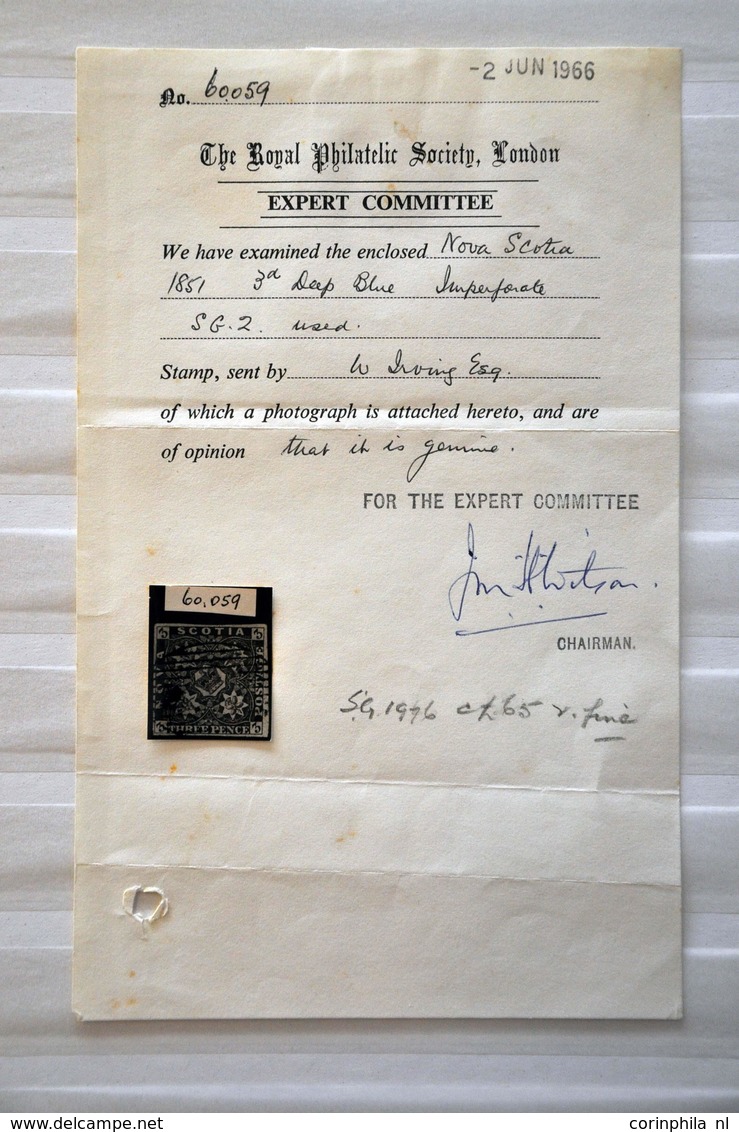 -2 JUN 1966
No. 60.059
The Royal Philatelic Society, London
EXPERT COMMITTEE
We have examined the enclosed Nova Scotia
1851 3d Deep Blue Imperforate
SG.2. used.
Stamp, sent by W Irving Esq.
of which a photograph is attached hereto, and are
of opinion that it is genuine.
FOR THE EXPERT COMMITTEE
CHAIRMAN.
60.059
SCOTIA
NOVA
POSTAGE
THREE PENCE
S.G. 1976 £65 v. fine
Delcampe.net
corinphila nl